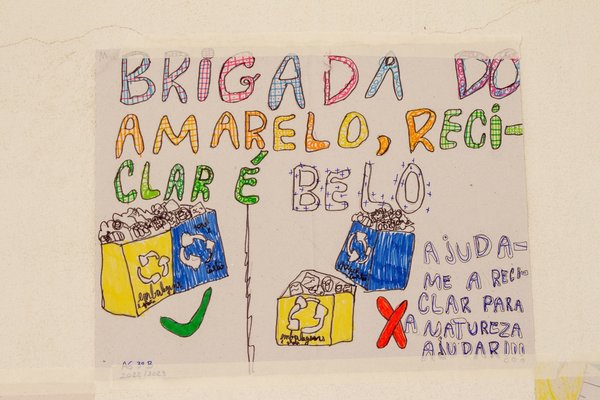 BRIGADA DO
AMARELO, RECI-
CLAR É BELO
embalagens
AJUDA-
ME A RECI-
CLAR PARA
A NATUREZA
AJUDAR!!!
embalagens
2022/2023